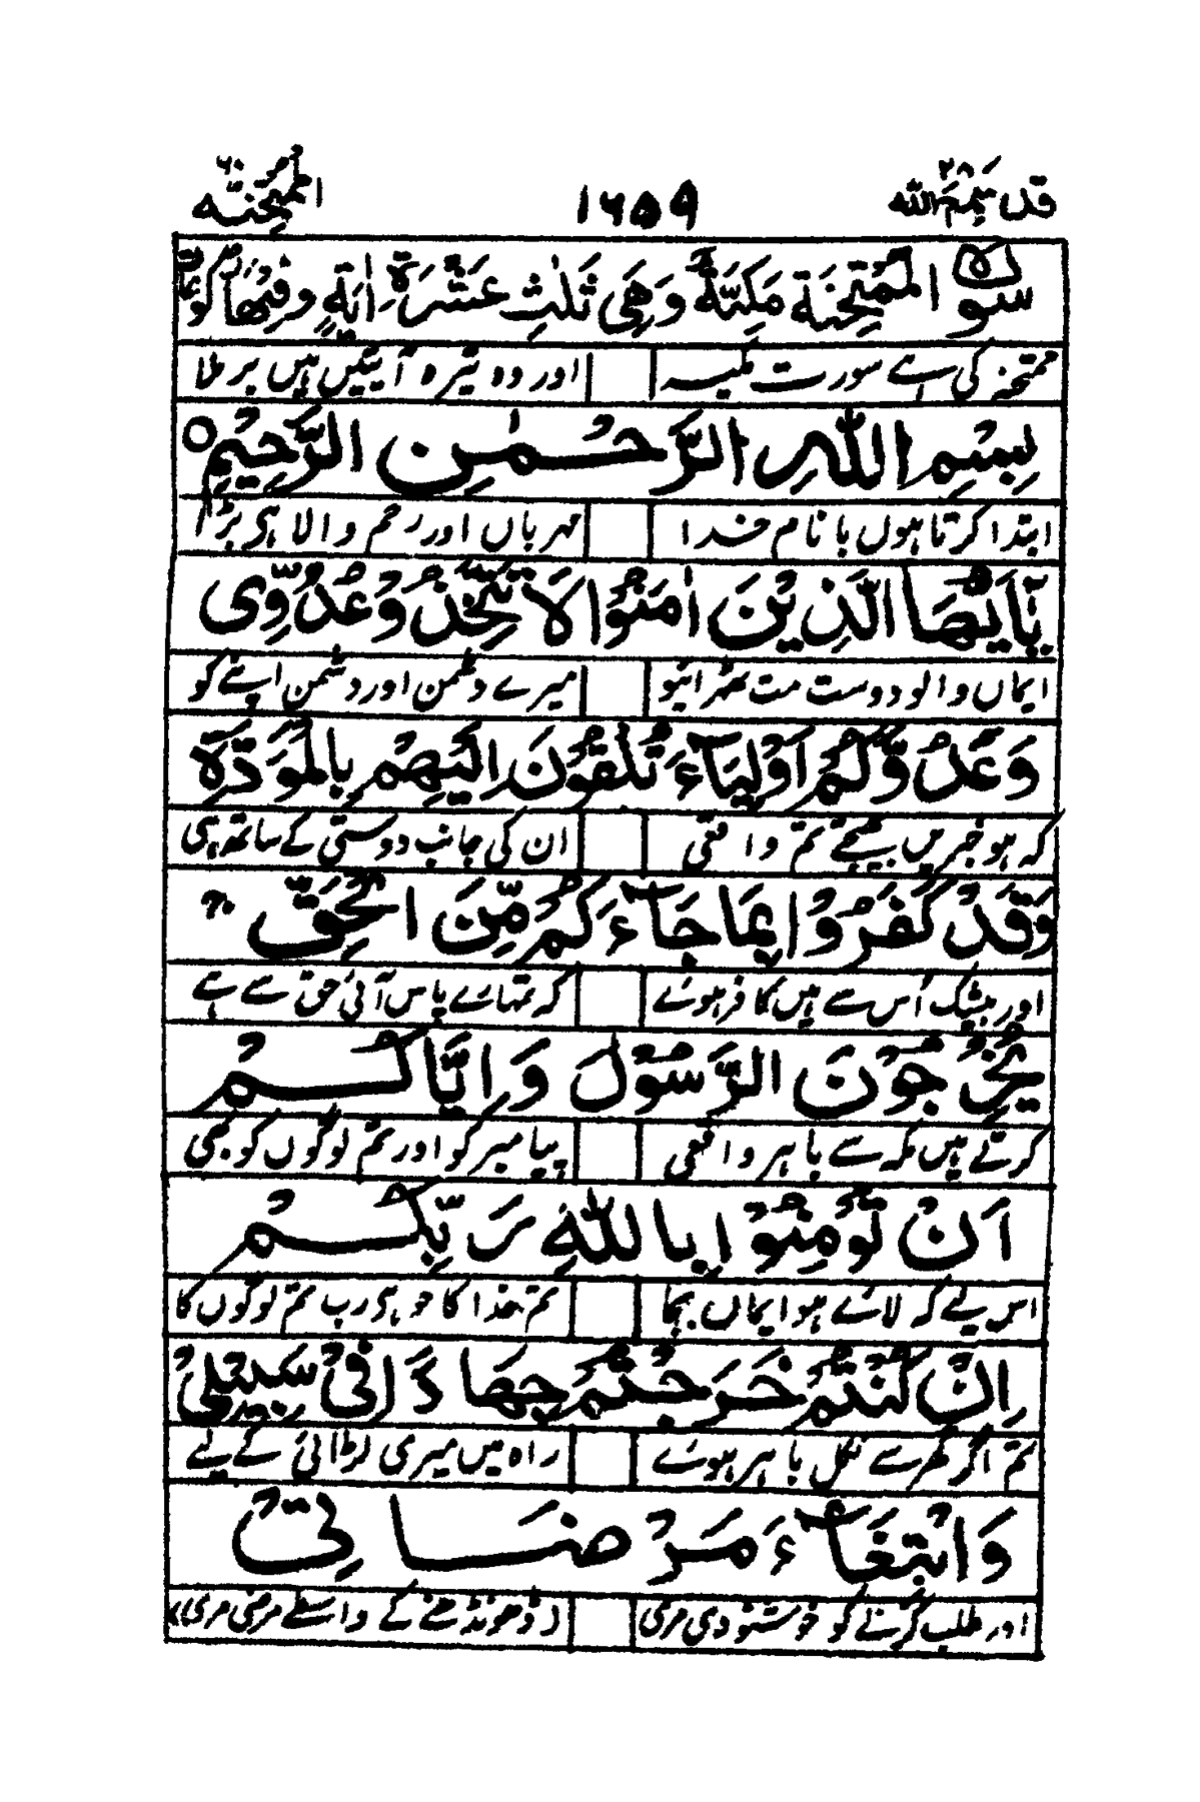 قد سمع الله ٢٨ ١٦٥٩ الممتحنة ٦٠
سورة الممتحنة مكية وهي ثلث عشرة اية وفيها
ممتحنہ کی ہے سورت مکیہ اور وہ تیرہ آیتیں ہیں بر ملا
بِسْمِ اللهِ الرَّحْمٰنِ الرَّحِيْمِ
ابتدا کرتا ہوں با نام خدا مہرباں اور رحم والا ہی بڑا
يٰٓاَيُّهَا الَّذِيْنَ اٰمَنُوْا لَا تَتَّخِذُوْا عَدُوِّىْ
ایماں والو دوست مت ٹھہرائیو میرے دشمن اور دشمن اپنے کو
وَعَدُوَّكُمْ اَوْلِيَآءَ تُلْقُوْنَ اِلَيْهِمْ بِالْمَوَدَّةِ
کہ ہو خبریں بھیجتے تم واقعی ان کی جانب دوستی کے ساتھ ہی
وَقَدْ كَفَرُوْا بِمَا جَآءَكُمْ مِّنَ الْحَقِّ
اور بیشک اُس سے ہیں کافر ہوئے کہ تمہارے پاس آئی حق سے ہے
يُخْرِجُوْنَ الرَّسُوْلَ وَاِيَّاكُمْ
کرتے ہیں مکہ سے باہر واقعی پیامبر کو اور تم لوگوں کو بھی
اَنْ تُؤْمِنُوْا بِاللهِ رَبِّكُمْ
اس لیے کہ لائے ہو ایماں بجا تم خدا کا جو ہی رب تم لوگوں کا
اِنْ كُنْتُمْ خَرَجْتُمْ جِهَادًا فِىْ سَبِيْلِىْ
تم اگر گھر سے نکل باہر ہوئے راہ میں میری لڑائی کے لیے
وَابْتِغَآءَ مَرْضَاتِىْ
اور طلب کرنے کو خوشنودی مری (ڈھونڈھنے کے واسطے مرضی مری)